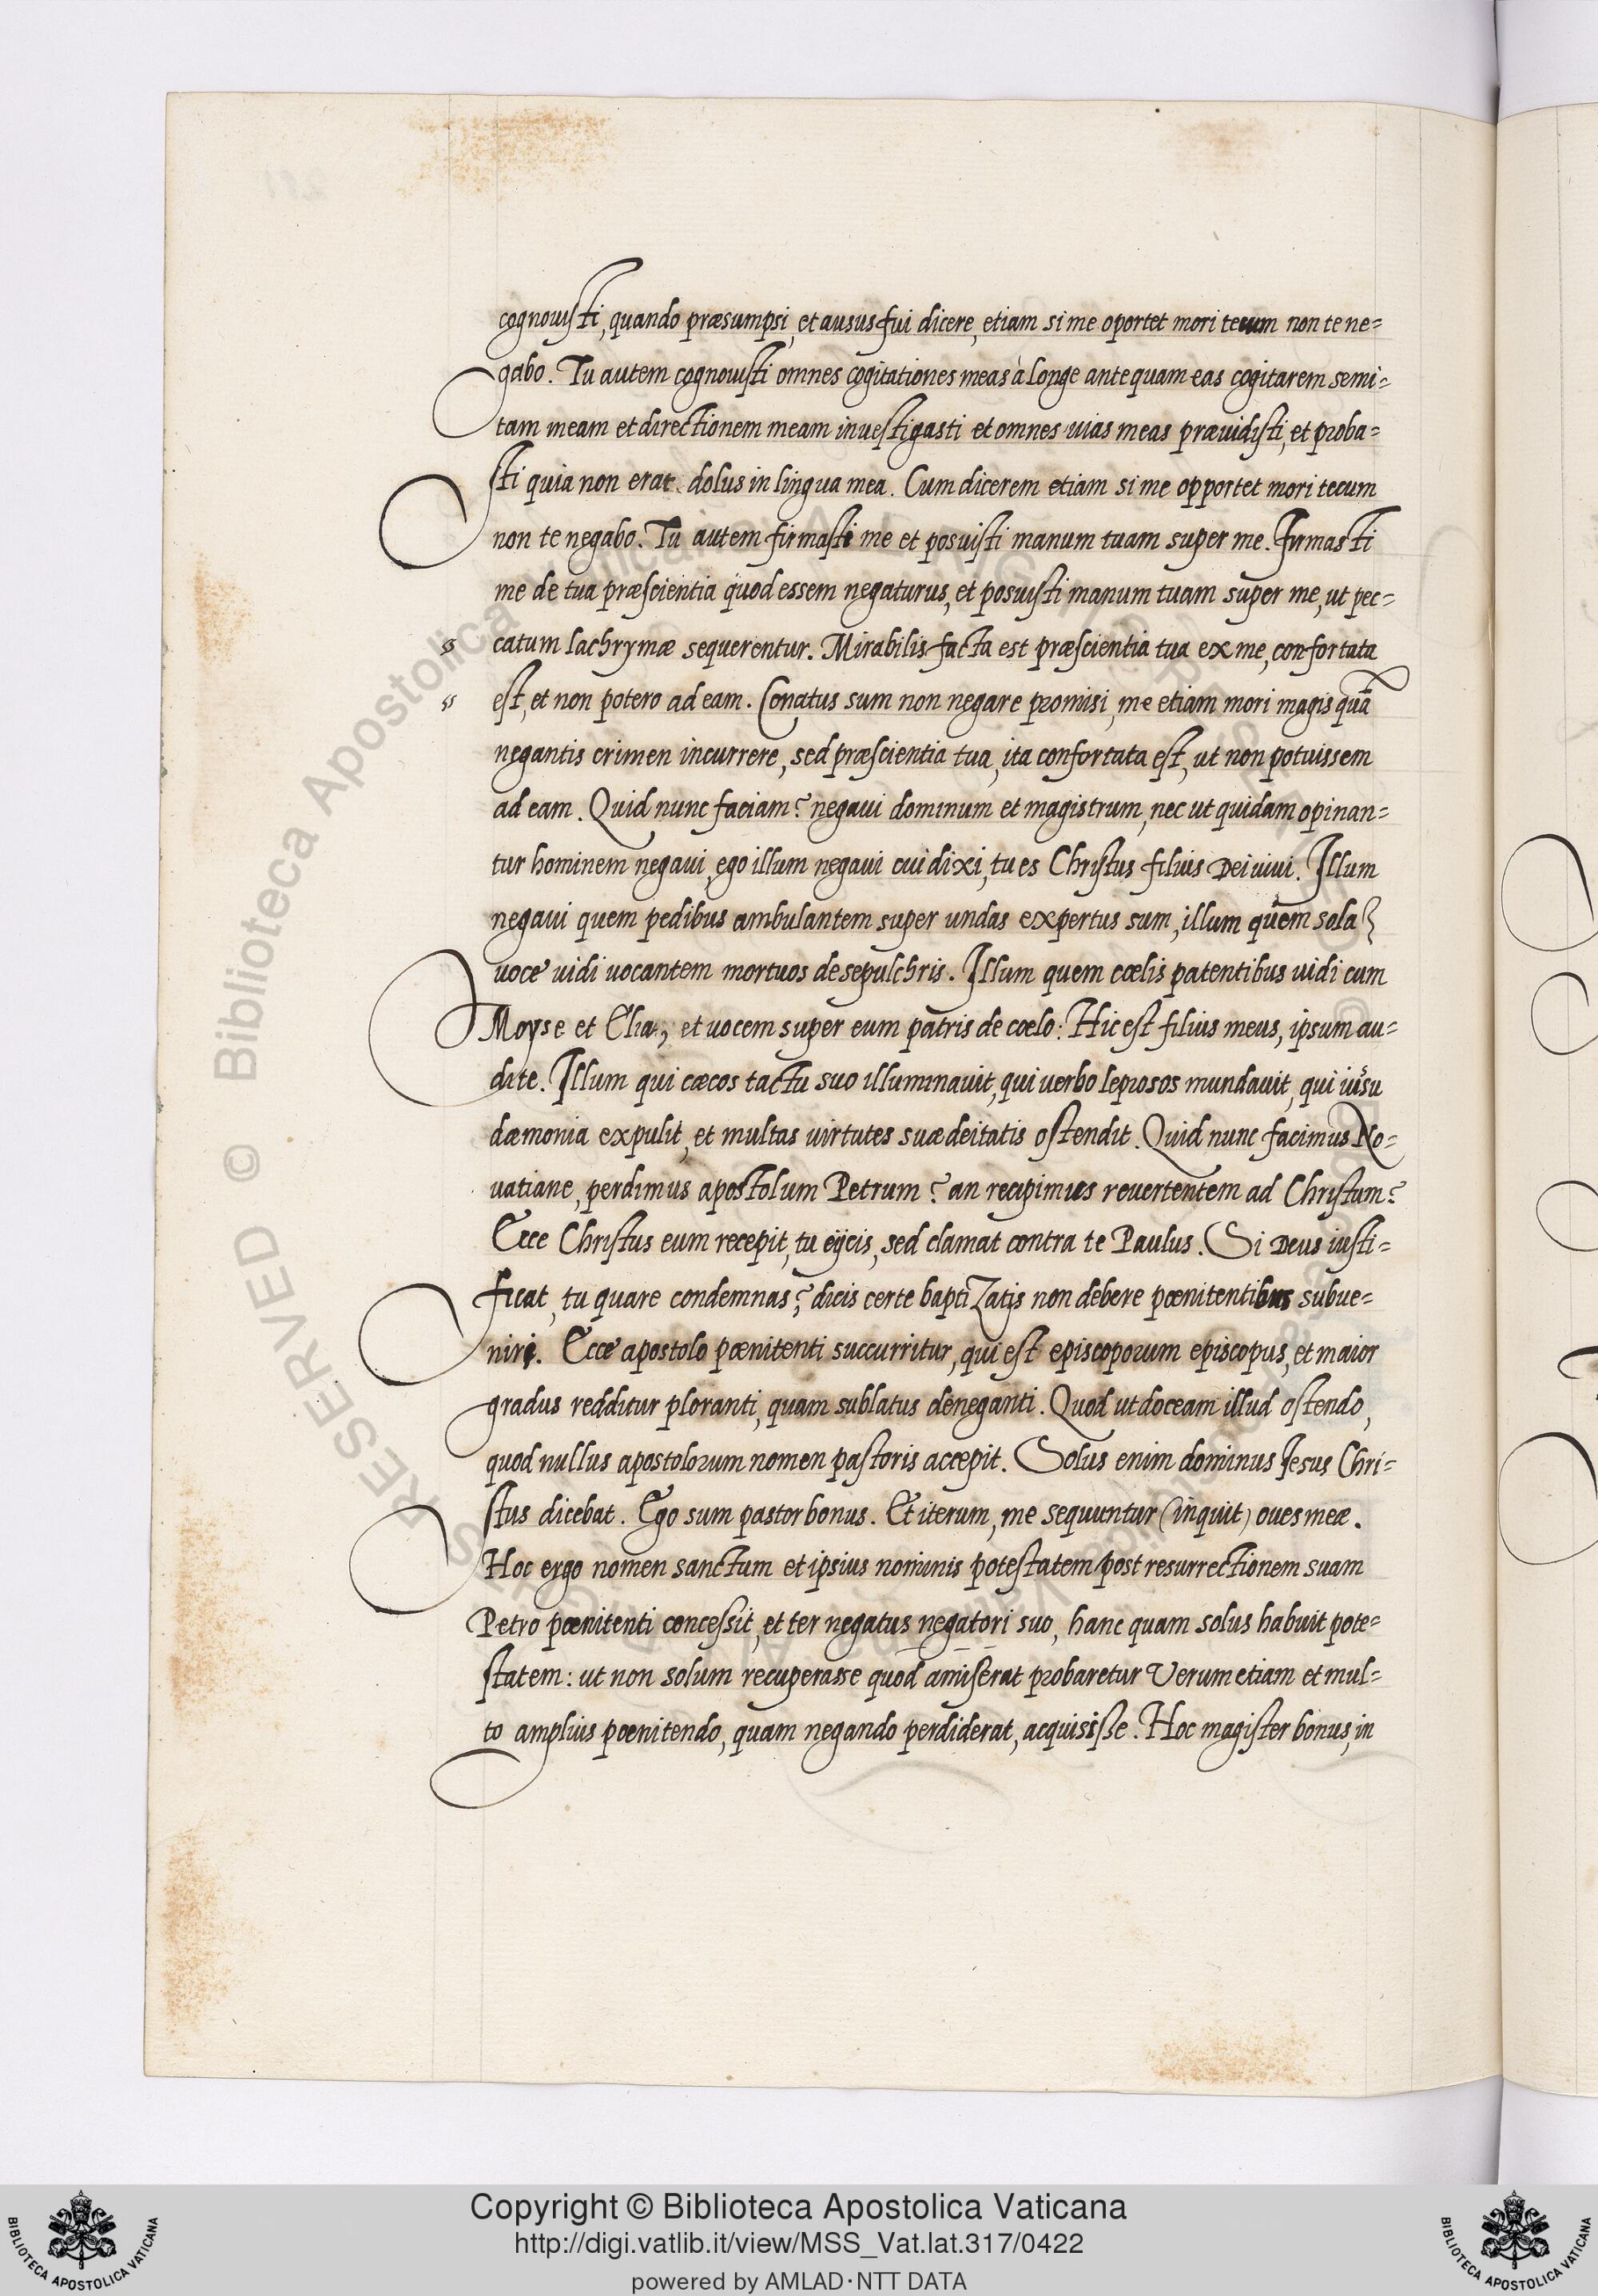 cognouisti, quando præsumpsi, et ausus fui dicere, etiam si me oportet mori tecum non te ne=
gabo. Tu autem cognouisti omnes cogitationes meas à longe antequam eas cogitarem semi=
tam meam et directionem meam inuestigasti et omnes uias meas præuidisti, et proba=
sti quia non erat dolus in lingua mea. Cum dicerem etiam si me opportet mori tecum
non te negabo. Tu autem firmasti me et posuisti manum tuam super me. Firmasti
me de tua præscientia quod essem negaturus, et posuisti manum tuam super me, ut pec=
catum lachrymæ sequerentur. Mirabilis facta est præscientia tua ex me, confortata
est, et non potero ad eam. Conatus sum non negare promisi, me etiam mori magis quā
negantis crimen incurrere, sed præscientia tua, ita confortata est, ut non potuissem
ad eam. Quid nunc faciam? negaui dominum et magistrum, nec ut quidam opinan=
tur hominem negaui, ego illum negaui cui dixi, tu es Christus filius Dei uiui. Illum
negaui quem pedibus ambulantem super undas expertus sum, illum quem sola
uoce uidi uocantem mortuos de sepulchris. Illum quem cœlis patentibus uidi cum
Moyse et Elia, et uocem super eum patris de cœlo: Hic est filius meus, ipsum au=
dite. Illum qui cæcos tactu suo illuminauit, qui uerbo leprosos mundauit, qui iussu
dæmonia expulit, et multas uirtutes suæ deitatis ostendit. Quid nunc facimus No=
uatiane, perdimus apostolum Petrum? an recipimus reuertentem ad Christum?
Ecce Christus eum recepit, tu eijcis, sed clamat contra te Paulus. Si Deus iusti=
ficat, tu quare condemnas? dicis certe baptizatis non debere pœnitentibus subue=
niri. Ecce apostolo pœnitenti succurritur, qui est episcoporum episcopus, et maior
gradus redditur ploranti, quam sublatus deneganti. Quod ut doceam illud ostendo,
quod nullus apostolorum nomen pastoris accepit. Solus enim dominus Jesus Chri=
stus dicebat. Ego sum pastor bonus. Et iterum, me sequuntur (inquit) oues meæ.
Hoc ergo nomen sanctum et ipsius nominis potestatem post resurrectionem suam
Petro pœnitenti concessit, et ter negatus negatori suo, hanc quam solus habuit pote=
statem: ut non solum recuperasse quod amiserat probaretur Verum etiam et mul=
to amplius pœnitendo, quam negando perdiderat, acquisisse. Hoc magister bonus, in
Copyright © Biblioteca Apostolica Vaticana
http://digi.vatlib.it/view/MSS_Vat.lat.317/0422
powered by AMLAD·NTT DATA